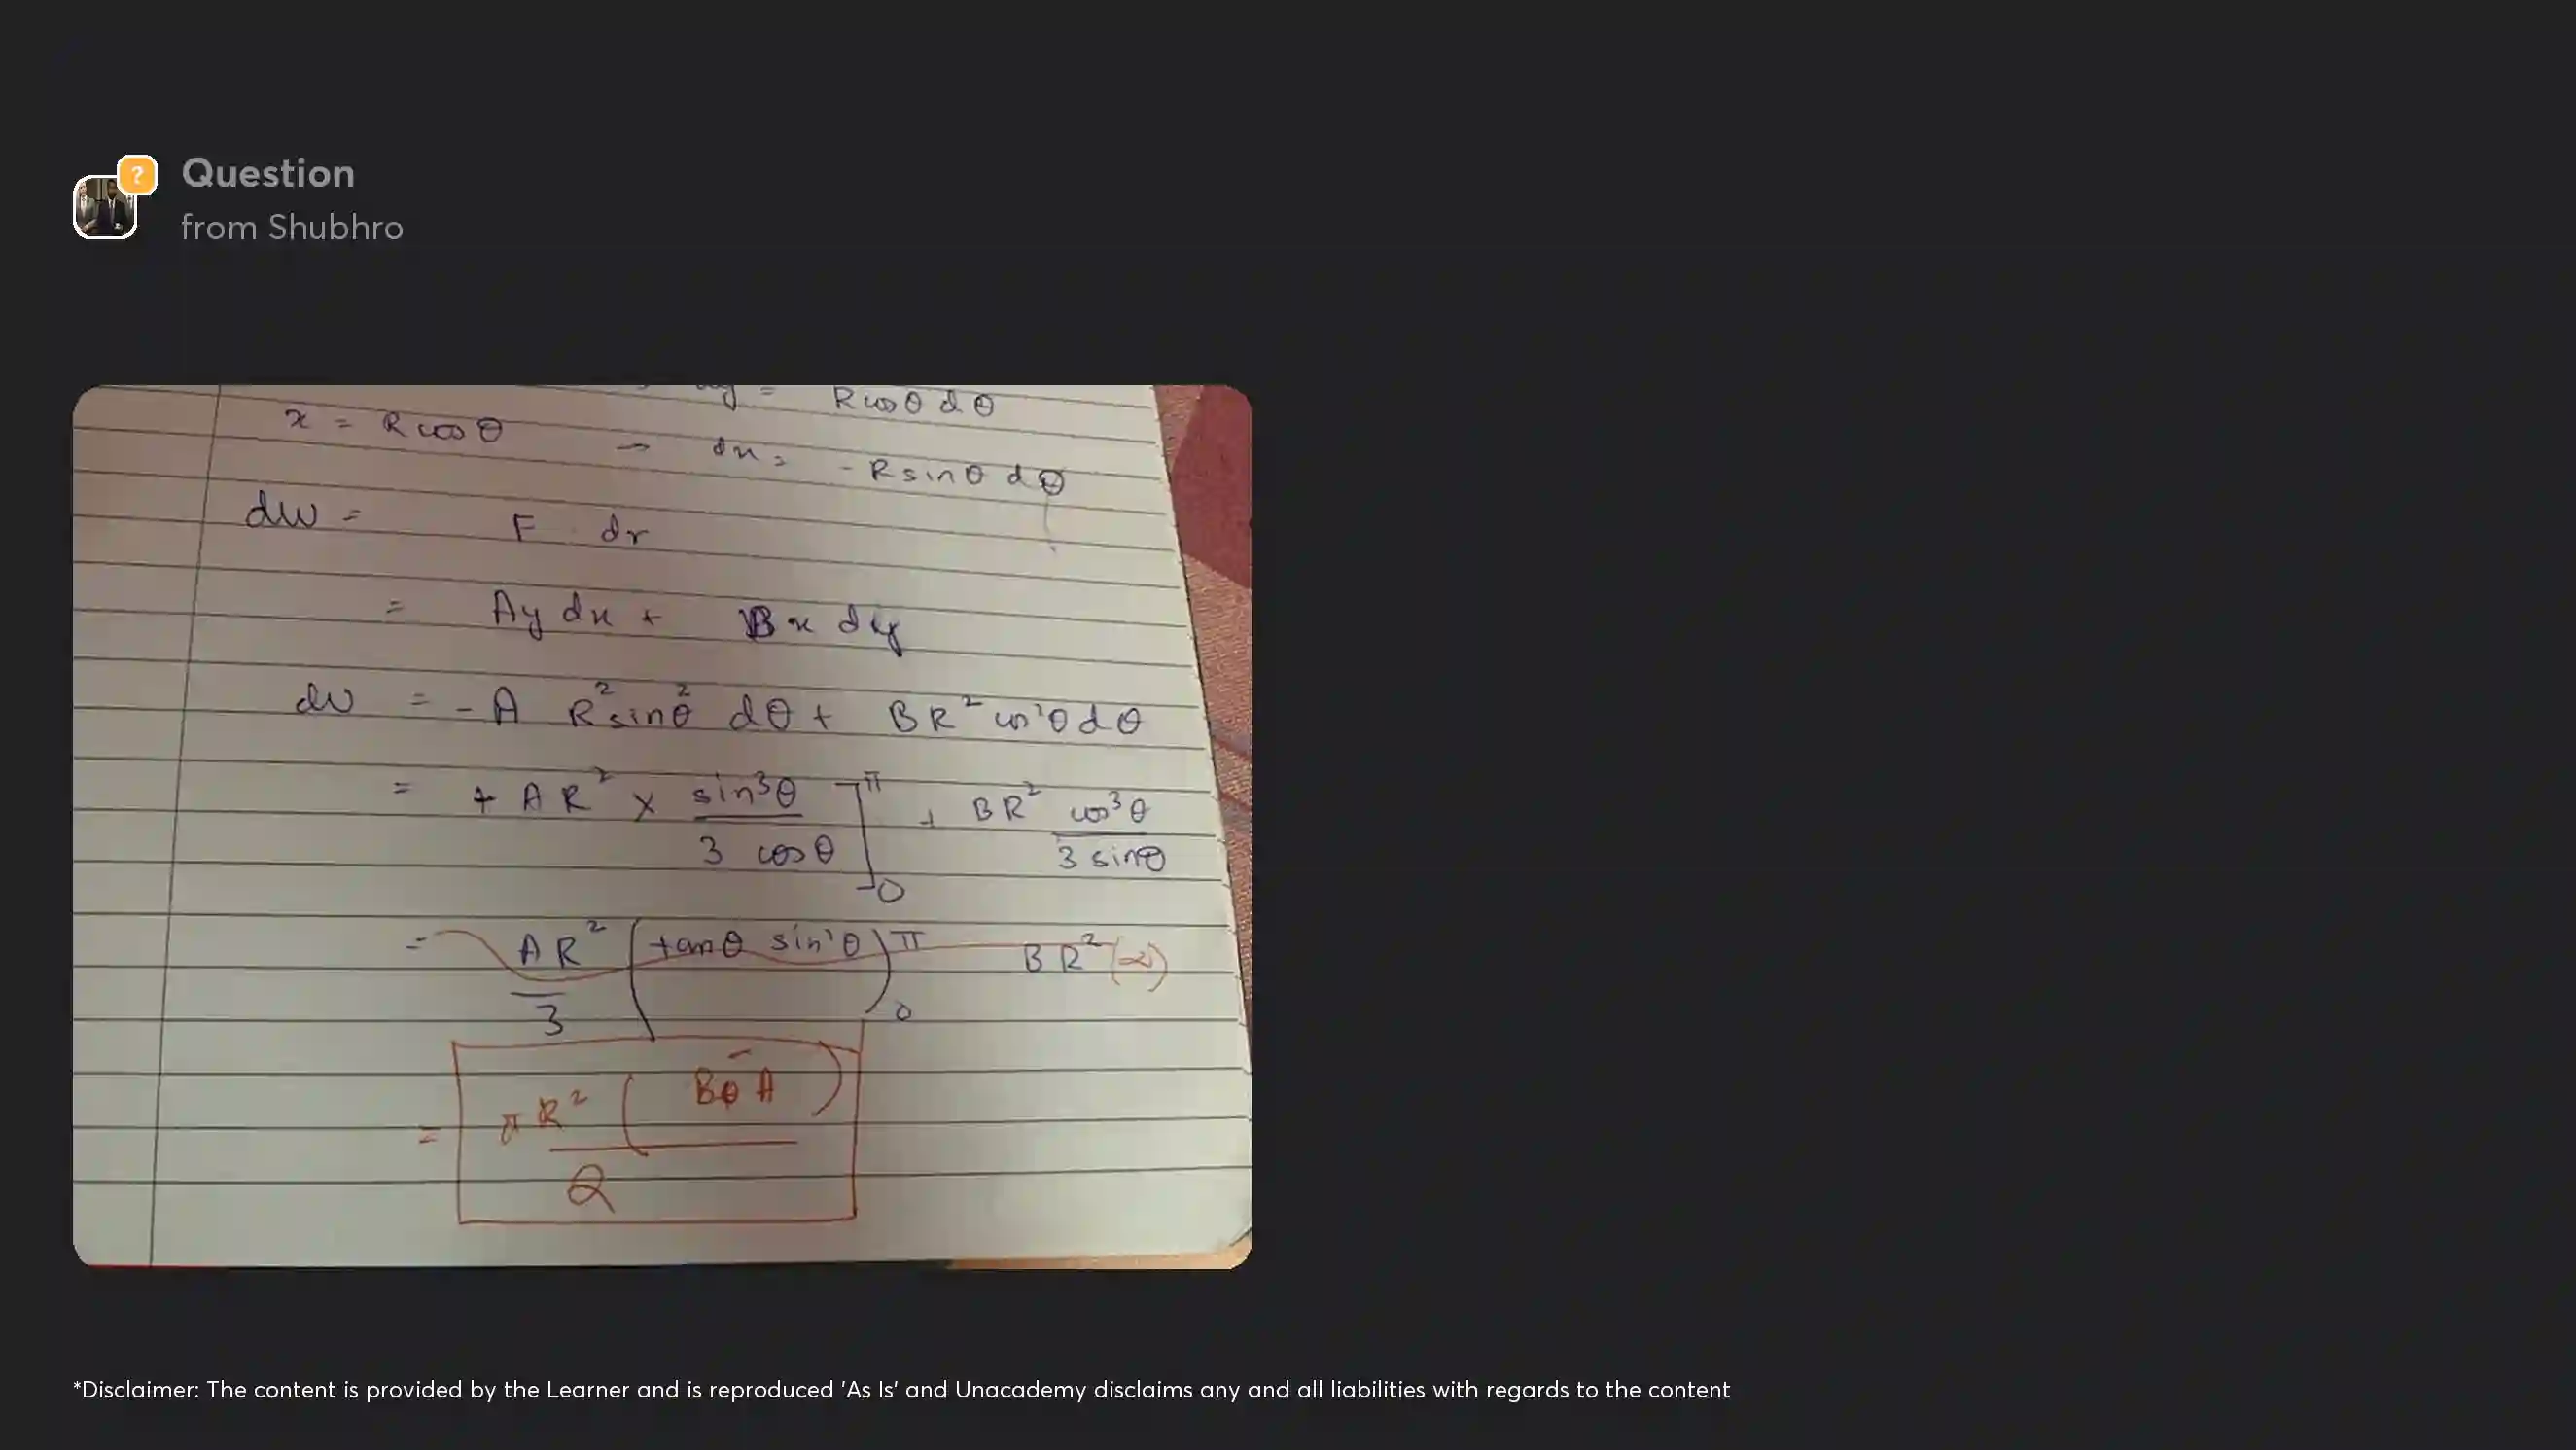 ?
Question
from Shubhro
dy = R cos θ d θ
x = R cos θ → dx = - R sin θ d θ
dW = F . dr
= Ay dx + Bx dy
dW = - A R² sin θ² d θ + B R² cos² θ d θ
= + A R² × sin³ θ / 3 cos θ ]₀^π + B R² cos³ θ / 3 sin θ
= A R² / 3 ( tan θ sin² θ )₀^π B R² (∞)
= π R² ( B - A ) / 2
*Disclaimer: The content is provided by the Learner and is reproduced 'As Is' and Unacademy disclaims any and all liabilities with regards to the content